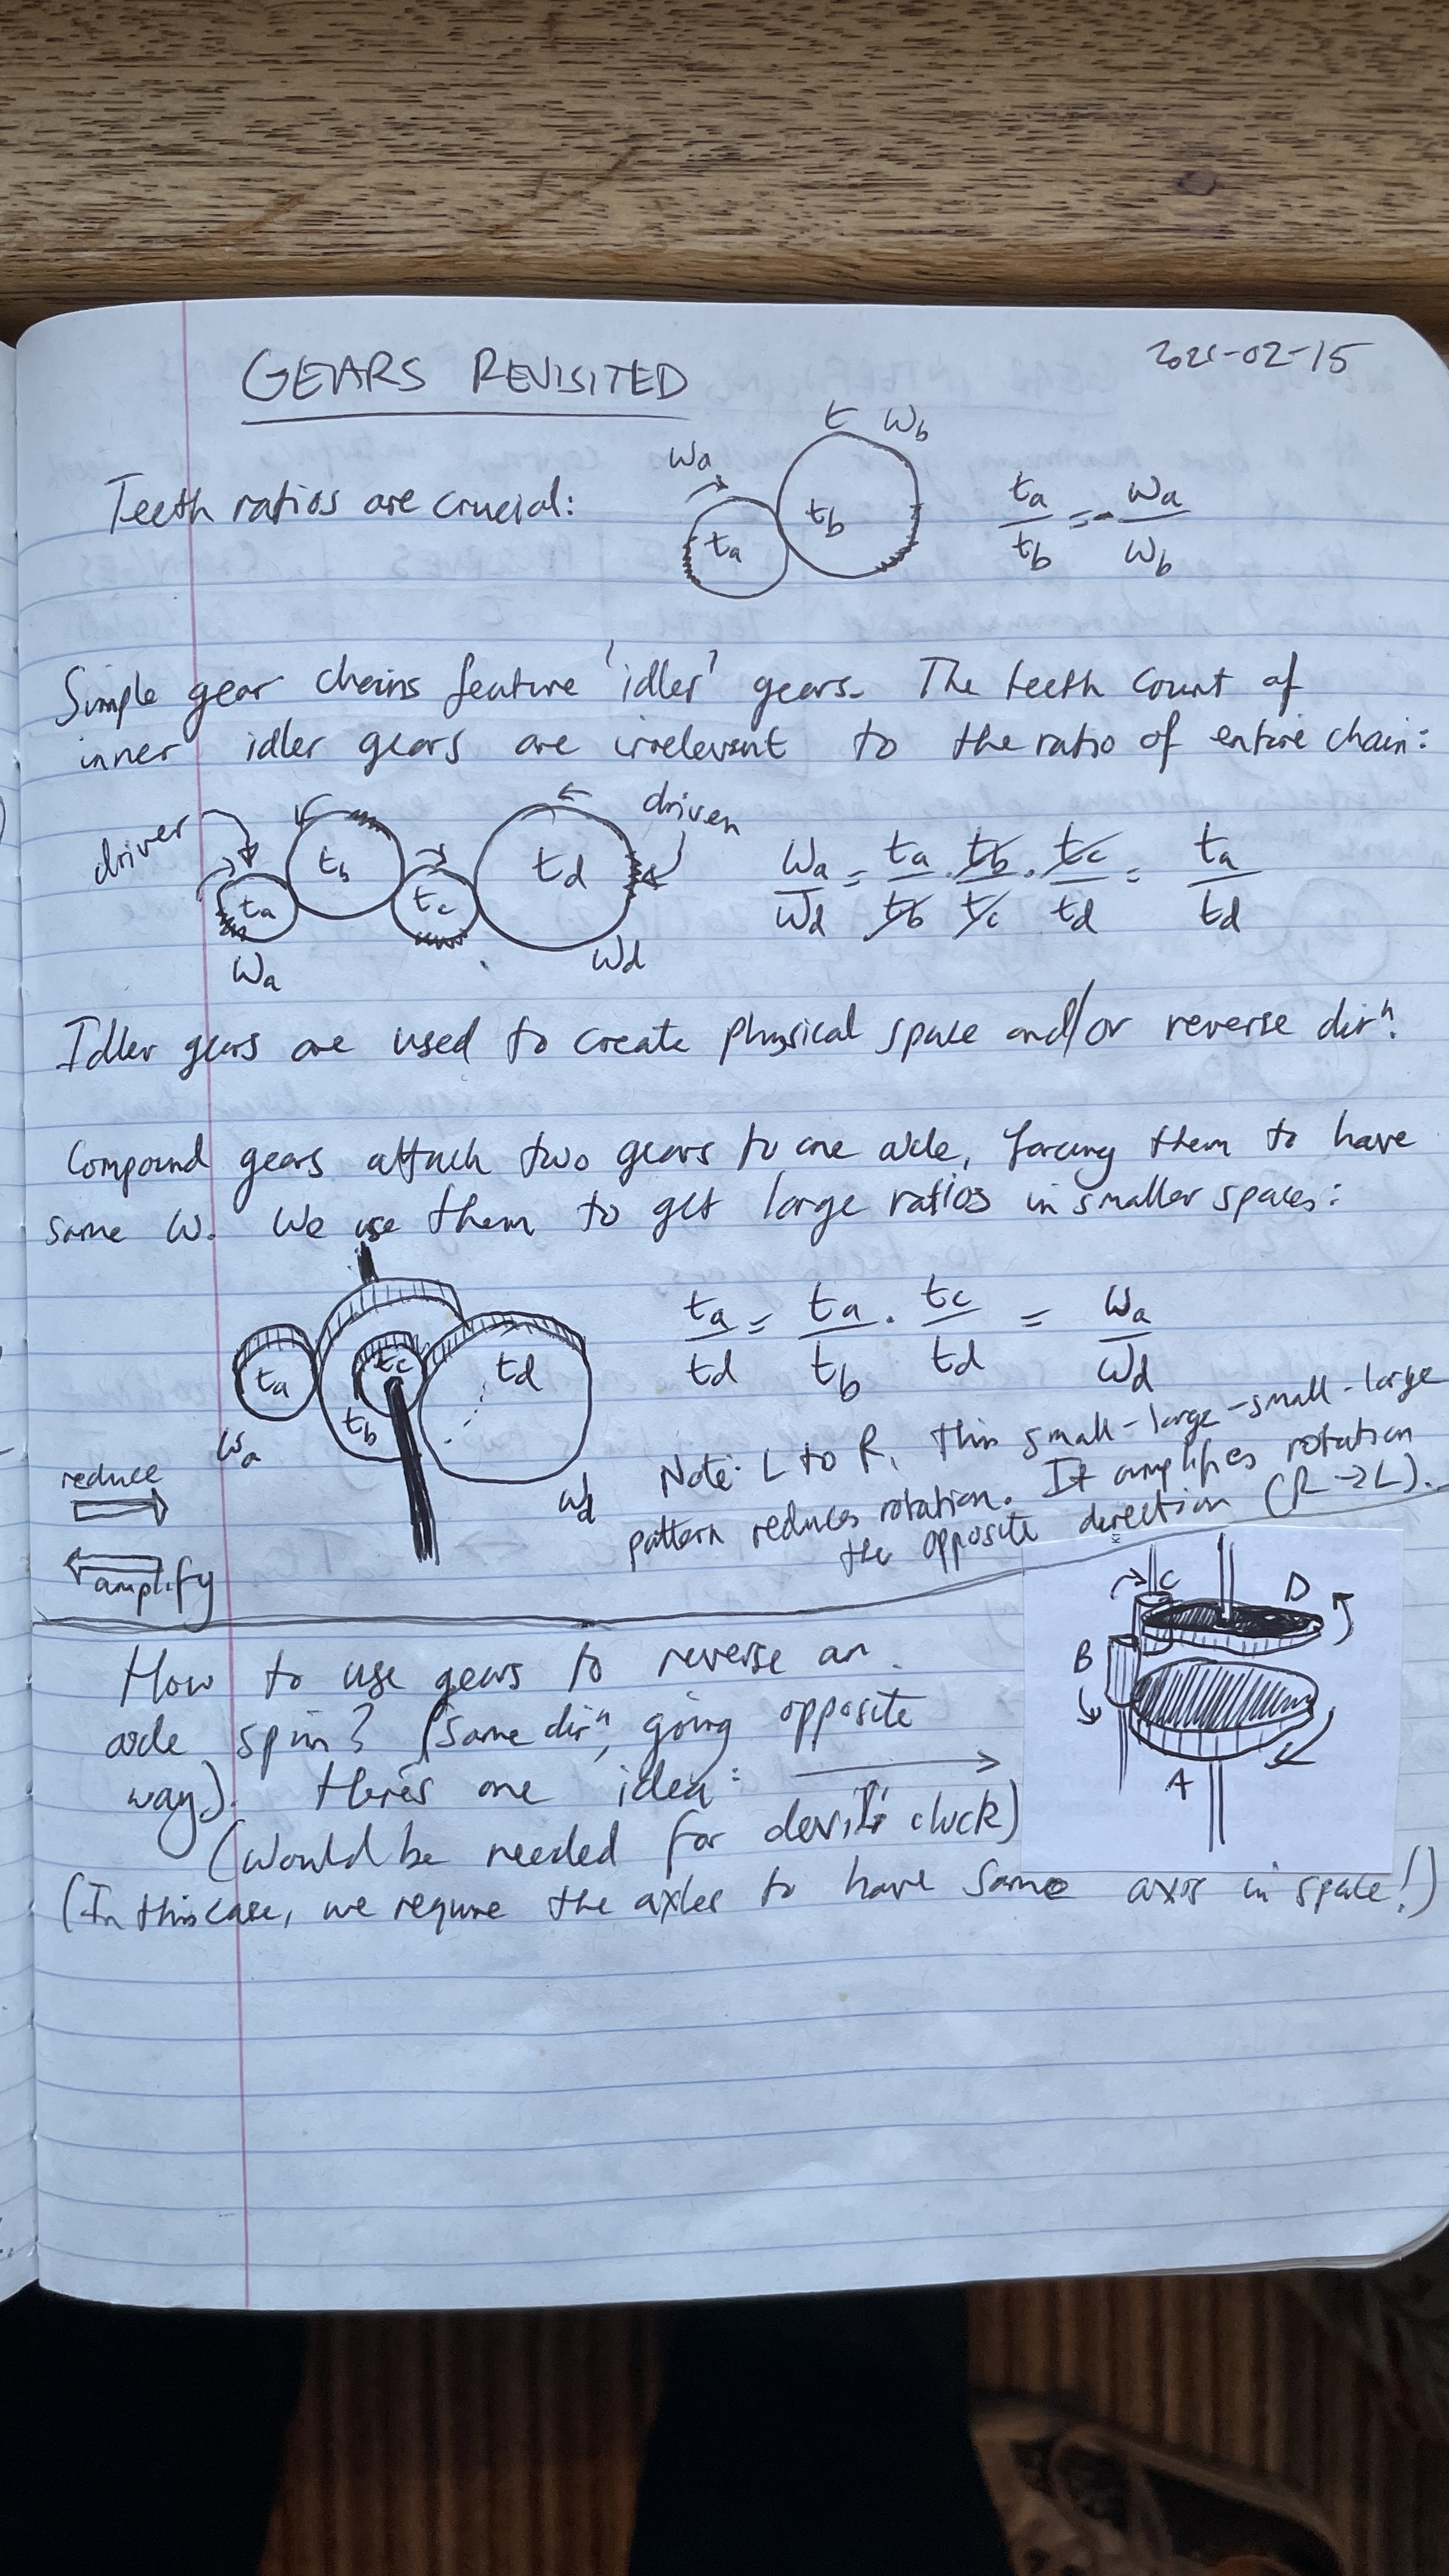 GEARS REVISITED
2021-02-15
Teeth ratios are crucial:
ωa
ωb
ta
tb
ta/tb = - ωa/ωb
Simple gear chains feature 'idler' gears. The teeth count of
inner idler gears are irrelevent to the ratio of entire chain:
driver
driven
ta
tb
tc
td
ωa
ωd
ωa/ωd = ta/tb · tb/tc · tc/td = ta/td
Idler gears are used to create physical space and/or reverse dirⁿ.
Compound gears attach two gears to one axle, forcing them to have
same ω. We use them to get large ratios in smaller spaces:
ta
tb
tc
td
ωa
ωd
ta/td = ta/tb · tc/td = ωa/ωd
reduce
amplify
Note: L to R, this small-large-small-large
pattern reduces rotation. It amplifies rotation
the opposite direction (R→L).
How to use gears to reverse an
axle spin? (same dirⁿ, going opposite
way). Here's one idea:
(Would be needed for devil's clock)
(In this case, we require the axles to have same axis in space!)
C
D
B
A